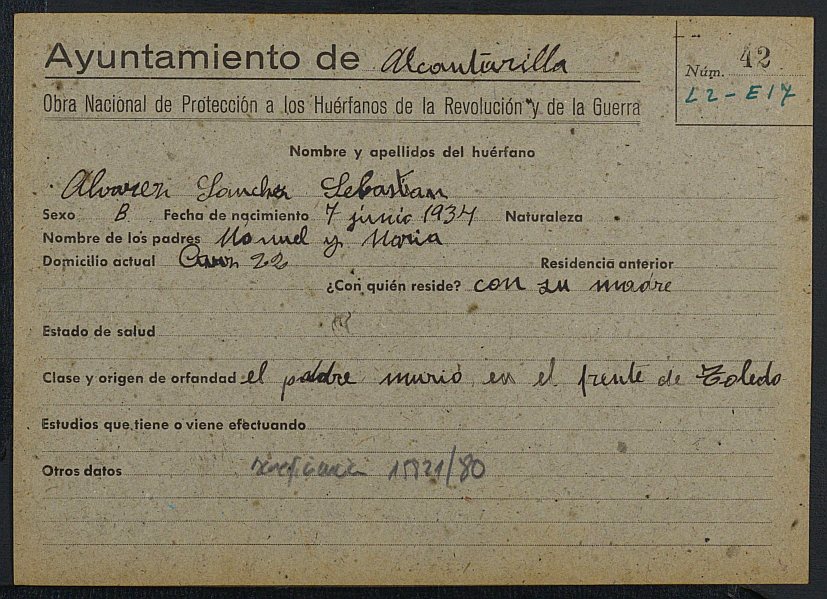 Ayuntamiento de Alcantarilla
Núm. 42
L2-E17
Obra Nacional de Protección a los Huérfanos de la Revolución y de la Guerra
Nombre y apellidos del huérfano
Alvarez Sanchez Sebastian
Sexo Fecha de nacimiento 7 junio 1934 Naturaleza
Nombre de los padres Manuel y Maria
Domicilio actual 22 Residencia anterior
¿Con quién reside? con su madre
Estado de salud
Clase y origen de orfandad el padre murió en el frente de Toledo
Estudios que tiene o viene efectuando
Otros datos